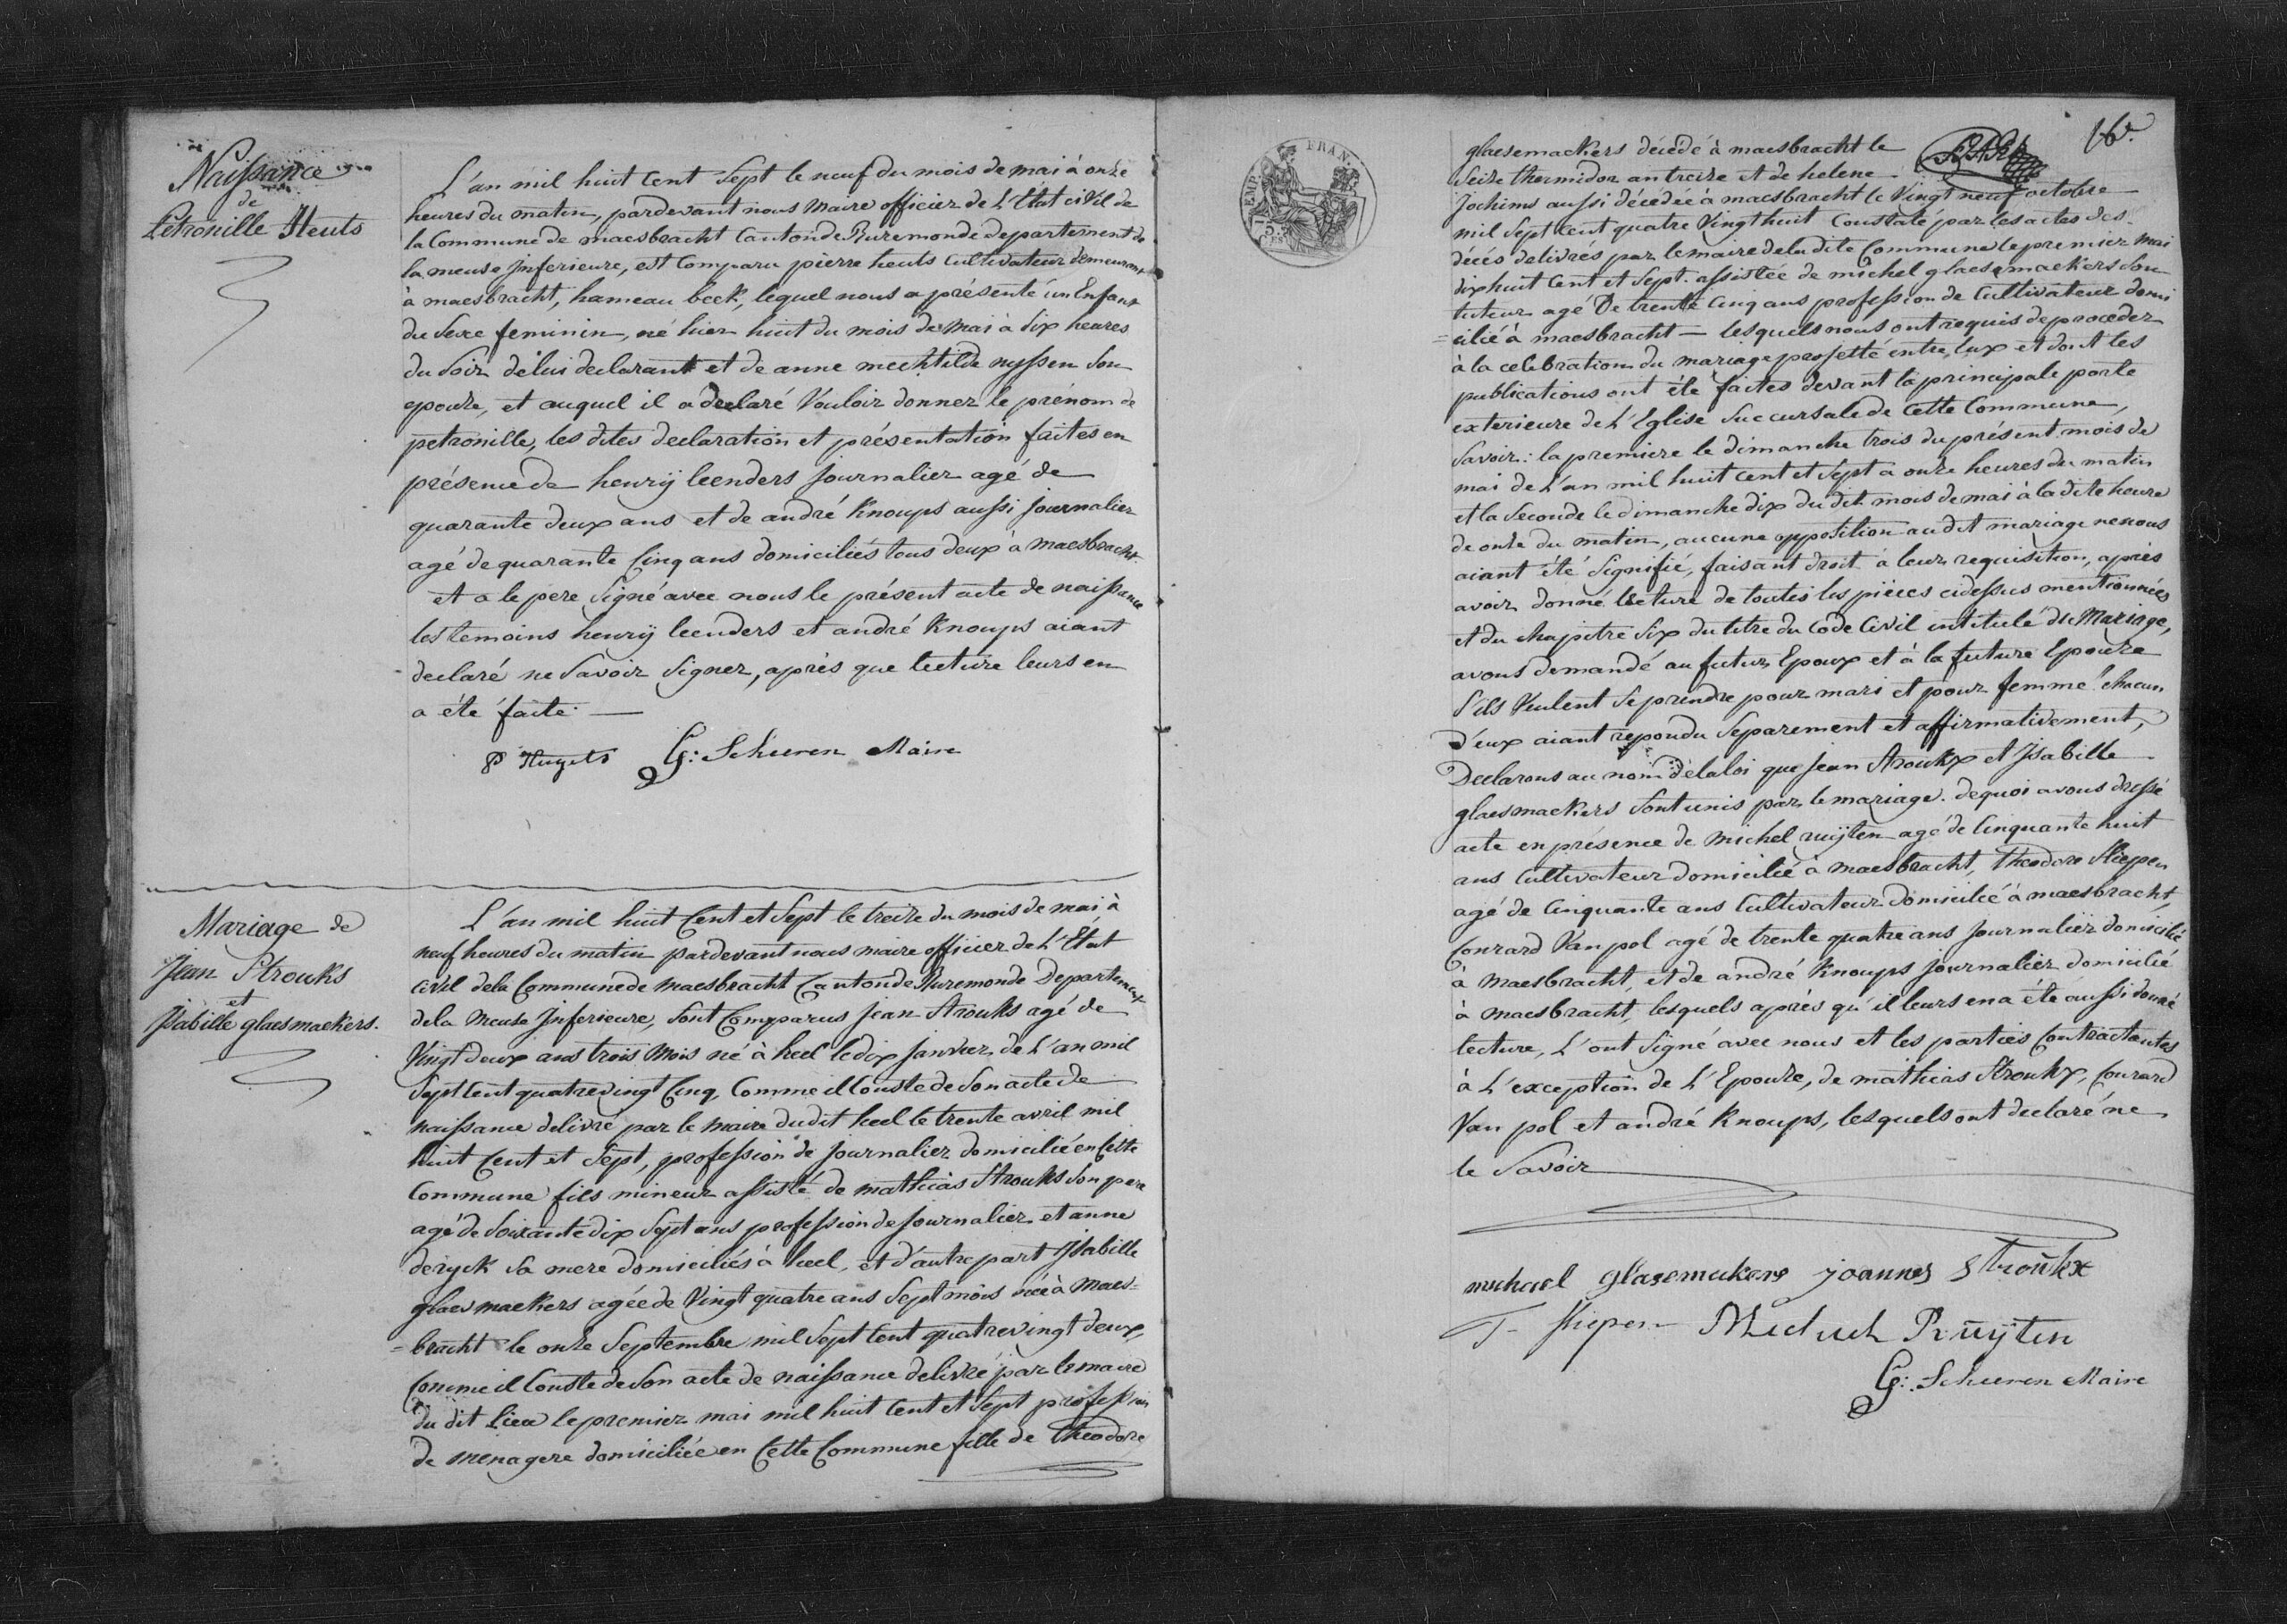 Naissance
de
Petronille Heuts
L'an mil huit Cent Sept le neuf du mois de mai à onze
heures du matin, pardevant nous Maire officier de L'Etat civil de
la Commune de maesbracht Canton de Ruremonde departement de
la meuse Inferieure, est Comparu pierre heuts Cultivateur demeurant
à maesbracht, hameau beek, lequel nous a présenté un Enfant
du Sexe feminin, né hier huit du mois de Mai à Six heures
du Soir de lui declarant et de anne mechtilde nyssen Son
epouse, et auquel il a declaré Vouloir donner le prénom de
petronille, les dites declaration et présentation faites en
présence de henrÿ leenders Journalier agé de
quarante deux ans et de andré Knoups aussi Journalier
agé de quarante Cinq ans domiciliés tous deux à maesbracht.
et a le pere Signé avec nous le présent acte de naissance
les temoins henrÿ leenders et andré Knoups aiant
declaré ne Savoir Signer, après que lecture leurs en
a été faite. —
G: Scheeren Maire
Mariage de
Jean Strouks
et
Jsabille glaesmackers.
L'an mil huit Cent et Sept le treize du mois de mai à
neuf heures du matin pardevant nous maire officier de L'Etat
Civil de la Commune de maesbracht Canton de Ruremonde Departement
de la Meuse Inferieure, Sont Comparus Jean Strouks agé de
Vingt deux ans trois Mois né à heel le dix Janvier de L'an mil
Sept Cent quatrevingt Cinq, Comme il Conste de Son acte de
naissance delivré par le maire du dit heel le trente avril mil
huit Cent et Sept, profession de Journalier domicilié en Cette
Commune fils mineur assisté de mathias Strouks Son pere
agé de Soixante dix Sept ans profession de Journalier et anne
deryck Sa mere domiciliés à heel, et d'autre part Jsabille
glaesmackers agée de Vingt quatre ans Sept mois née à Maes=
=bracht le onze Septembre mil Sept Cent quatrevingt deux,
Comme il Conste de Son acte de naissance delivré par le maire
du dit Lieu le premier mai mil huit Cent et Sept profession
de menagere domiciliée en Cette Commune fille de Theodore
EMP. FRAN.
16e.
glaesemackers décedé à maesbracht le
Seize thermidor an treize et de helene
Jochims aussi décedée à maesbracht le Vingt neuf octobre
mil Sept Cent quatre Vingt huit Constaté par les actes des
décés delivrés par le maire de la dite Commune le premier Mai
dix huit Cent et Sept. assistée de michel glaesemackers Son
tuteur agé De trente Cinq ans profession de Cultivateur domi
=cilié à maesbracht — lesquels nous ont requis de proceder
à la celebration du mariage projetté entre Eux et dont les
publications ont été faites devant la principale porte
exterieure de L'Eglise Succursale de Cette Commune,
Savoir: la premiere le dimanche trois du présent mois de
mai de L'an mil huit Cent et Sept à onze heures du matin
et la Seconde le dimanche dix du dit mois de mai à la dite heure
de onze du matin, aucune opposition audit mariage ne nous
aiant été Signifié, faisant droit à leur requisition, après
avoir donné lecture de toutes les pièces cidessus mentionnées
et du chapitre Six du titre du Code Civil intitulé du Mariage,
avons demandé au futur Epoux et à la future Epouse
S'ils Veulent Se prendre pour mari et pour femme: chacun
d'eux aiant repondu Separement et affirmativement,
Declarons au nom de la loi que Jean Stroukx et Jsabille
glaesmackers Sont unis par le mariage. de quoi avons dressé
acte en présence de Michel ruijten agé de Cinquante huit
ans Cultivateur domicilié à maesbracht, theodore Sliepen
agé de Cinquante ans Cultivateur domicilié à maesbracht,
Conrard Van pol agé de trente quatre ans Journalier domicilié
à maesbracht, et de andré Knoups Journalier domicilié
à maesbracht, lesquels après qu'il leurs en a été aussi donné
lecture, L'ont Signé avec nous et les parties Contractantes
à L'exception de L'Epouse, de mathias Stroukx, Conrard
Van pol et andré Knoups, lesquels ont declaré ne
le Savoir
michael glasemakers joannes Stroukx
T. Sliepen Michiel Rüÿten
G: Scheeren Maire